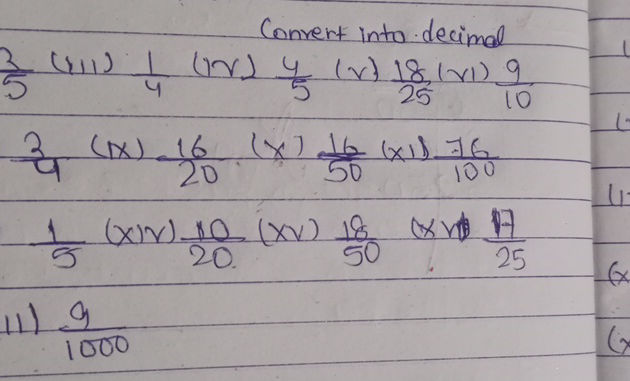 Convert into decimal
3/5 (iii) 1/4 (iv) 4/5 (v) 18/25 (vi) 9/10
3/4 (ix) 16/20 (x) 16/50 (xi) 76/100
1/5 (xiv) 10/20 (xv) 18/50 (xvi) 17/25
ii) 9/1000